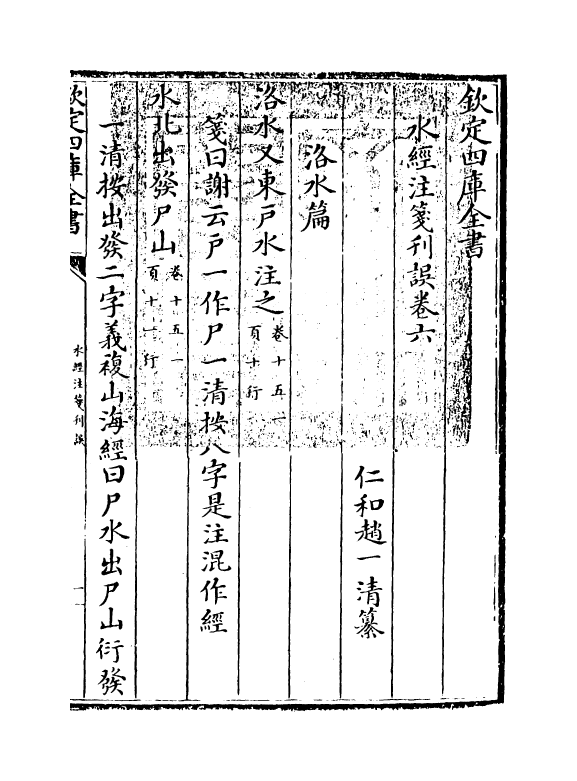 欽定四庫全書
水經注箋刋誤卷六
仁和趙一清纂
洛水篇
洛水又東戸水注之卷十五一頁十行
箋曰謝云戸一作尸一清按八字是注混作經
水北出發尸山卷十五一頁十一行
一清按出發二字義複山海經曰尸水出尸山衍發
欽定四庫全書
水經注箋刋誤
一